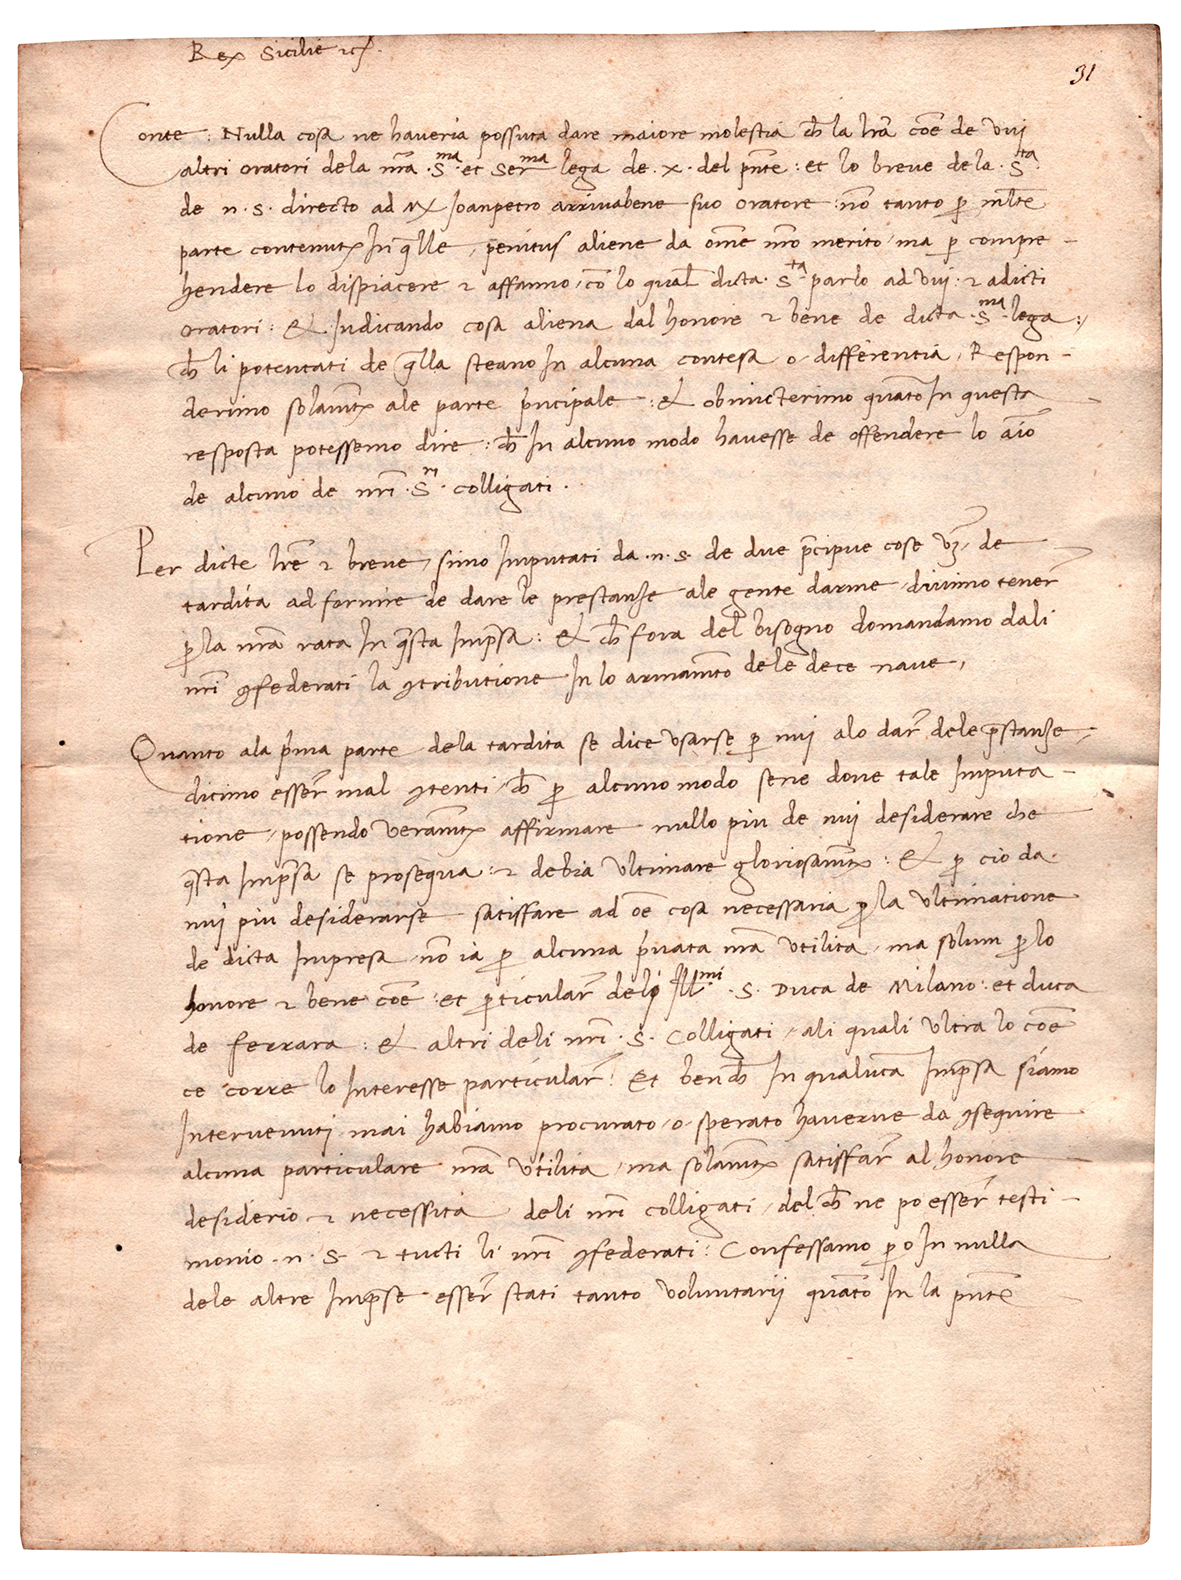 Rex Sicilie etc̃.
31
Conte : Nulla cosa ne haveria possuta dare maiore molestia ch̃ la lr̃a cõe de vui
altri oratori dela nr̃a .S.ma et Serma lega de .x. del pñte : et lo breve dela .S.ta
de .n.s. directo ad Mx Joanpetro arrivabene suo oratore : nõ tanto ꝑ mlte
parte contenutx In q̃lle, penitus aliene da om̃e nr̃o merito, ma ꝑ compre-
hendere lo dispiacere ⁊ affanno, cõ lo qual dicta .S.ta parlo ad vui : ⁊ adicti
oratori : & Iudicando cosa aliena dal honore ⁊ bene de dicta .S.ma lega :
ch̃ li potentati de q̃lla steano In alcuna contesa o, differentia, Respon-
derimo solamtx ale parte p̃ncipale : & obmicterimo quãto In questa
resposta potessemo dire : ch̃ In alcuno modo havesse de offendere lo aĩo
de alcuno de nr̃i .S.ri colligati .
Per dicte lr̃e ⁊ breve, simo Imputati da .n.s. de due p̃cipue cose vꝫ, de
tardita ad fornire de dare le prestanze ale gente darme, divimo tener̃
ꝑ la nr̃a rata In q̃sta Imp̃sa : & ch̃ fora del bisogno domandamo dali
nr̃i ꝯfederati la ꝯtributione In lo armamto dele dece nave,
Quanto ala p̃ma parte dela tardita se dice usarse ꝑ nui alo dar̃ dele p̃stanze,
dicimo esser̃ mal ꝯtenti, ch̃ ꝑ alcuno modo sene done tale Imputa-
tione, possendo veramtx affirmare nullo piu de nui desiderare che
q̃sta Imp̃sa se prosequa : ⁊ debia ultimare gloriosamtx : & ꝑ cio da
nui piu desiderarse satisfare ad oẽ cosa necessaria ꝑ la ultimatione
de dicta Impresa, nõ ia ꝑ alcuna p̃vata nr̃a utilita, ma solum ꝑ lo
honore ⁊ bene cõe : et ꝑticular̃ deli Ill.mi .S. Duca de Milano : et duca
de ferrara : & altri deli nr̃i .S. Colligati, ali quali ultra lo cõe
ce corre lo Interesse particular̃ : Et bench̃ In qualunca Imp̃sa siamo
Intervenuti mai habiamo procurato, o, sperato haverne da ꝯsequire
alcuna particulare nr̃a utilita, ma solamtx satisffar̃ al honore
desiderio ⁊ necessita deli nr̃i colligati, del ch̃ ne po esser̃ testi-
monio .n.S. ⁊ tucti li nr̃i ꝯfederati : Confessamo ꝑo In nulla
dele altre Imp̃se esser̃ stati tanto voluntarii quãto In la pñtx